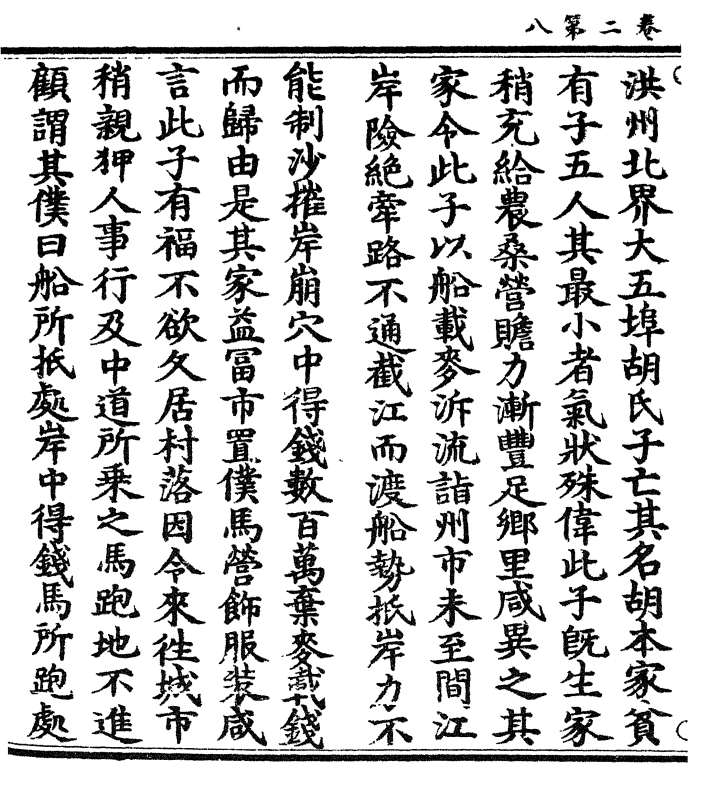 八第二卷
洪州北界大五埠胡氏子亡其名胡本家貧
有子五人其最小者氣狀殊偉此子既生家
稍充給農桑營贍力漸豐足鄉里咸異之其
家令此子以船載麥泝流詣州市未至間江
岸險絶牽路不通截江而渡船勢抵岸力不
能制沙摧岸崩穴中得錢數百萬棄麥載錢
而歸由是其家益冨市置僕馬營飾服裝咸
言此子有福不欲久居村落因令來往城市
稍親狎人事行及中道所乘之馬跑地不進
顧謂其僕曰船所抵處岸中得錢馬所跑處